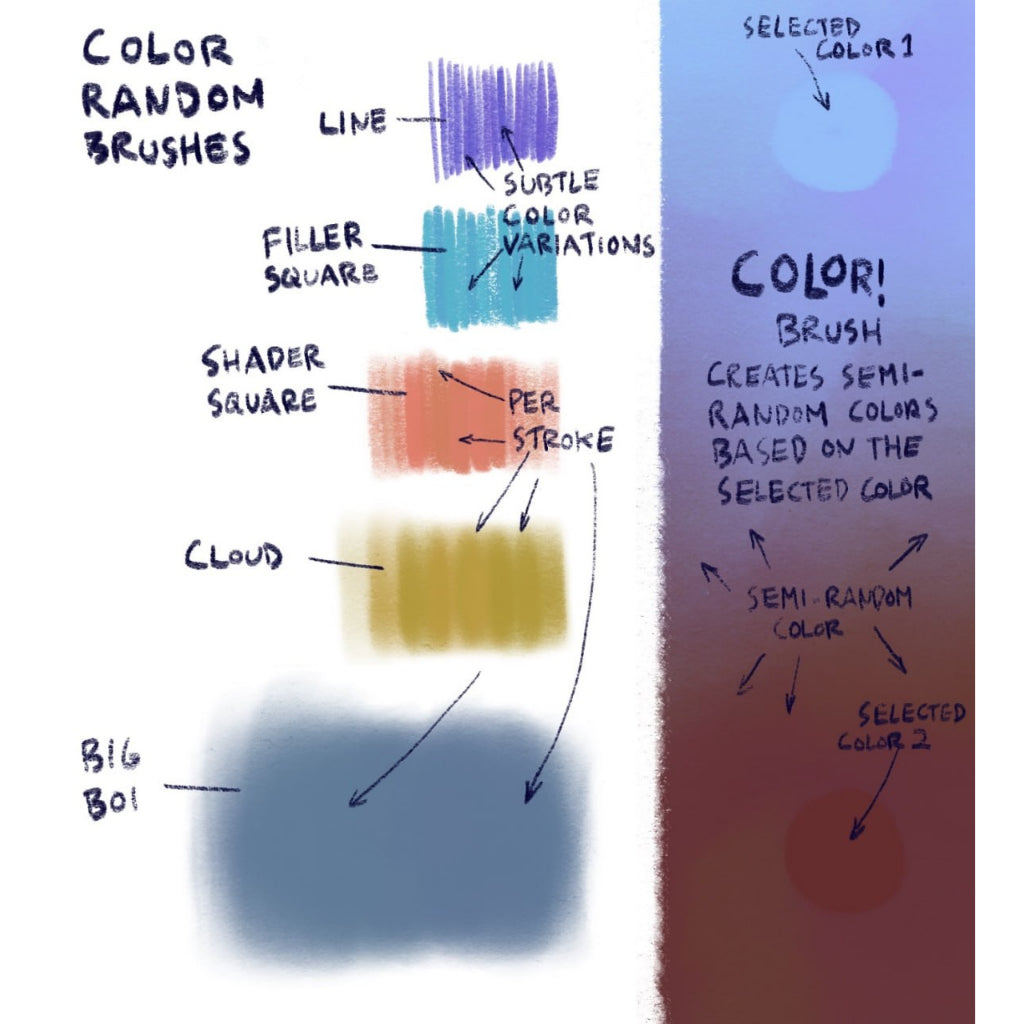 COLOR
RANDOM
BRUSHES
LINE
SUBTLE
COLOR
VARIATIONS
FILLER
SQUARE
SHADER
SQUARE
PER
STROKE
CLOUD
BIG
BOI
SELECTED
COLOR 1
COLOR!
BRUSH
CREATES SEMI-
RANDOM COLORS
BASED ON THE
SELECTED COLOR
SEMI-RANDOM
COLOR
SELECTED
COLOR 2